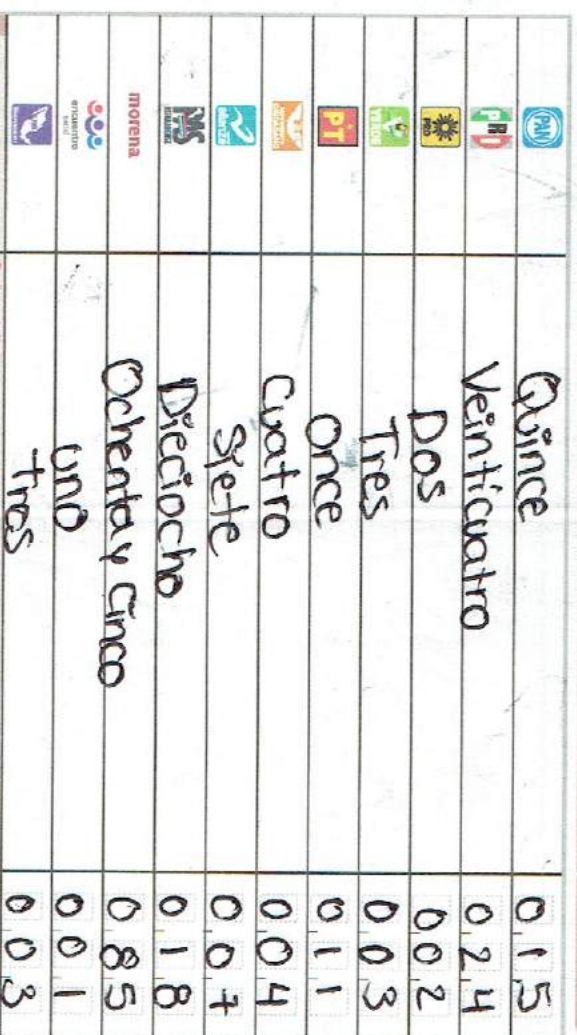 PAN Quince 015
PRI Veinticuatro 024
PRD Dos 002
VERDE Tres 003
PT Once 011
Cuatro 004
Siete 007
MÁS Dieciocho 018
morena Ochenta y Cinco 085
encuentro social uno 001
tres 003